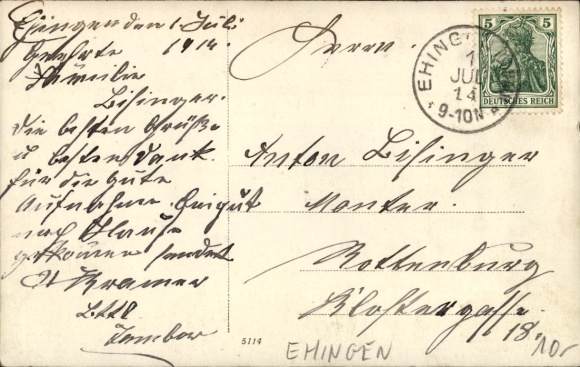 Ehingen den 1. Juli
1914.
Geehrte
Familie
Bisinger.
die besten Grüße
u besten Dank
für die Gute
Aufnahme. gut
nach Hause
gekomen sendet
Kramer
Tambor
Herrn.
Anton Bisinger
Monter.
Rottenburg
Klostergasse
18.
EHINGEN
JUL
14
9-10N
5 5
DEUTSCHES REICH
5114
EHINGEN
10.-